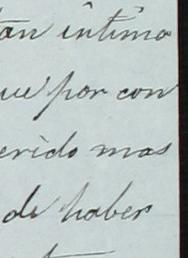 tan intimo
ue por con
erido mas
de haber